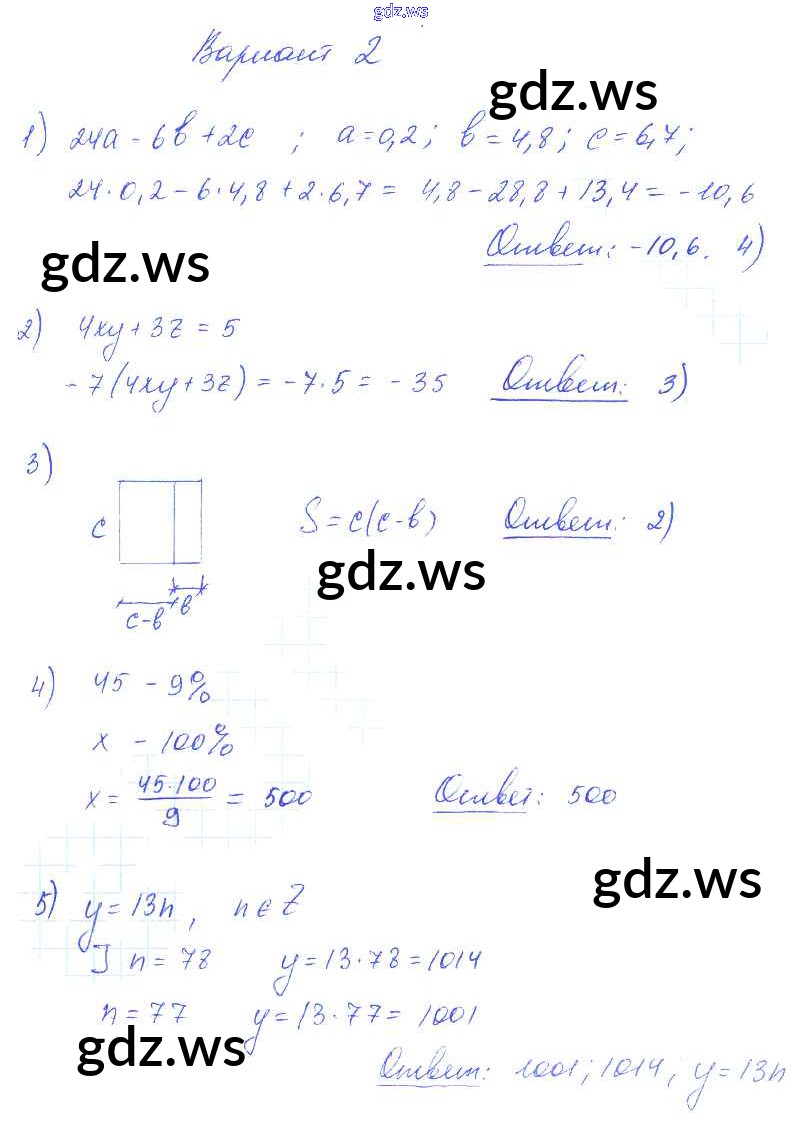 gdz.ws
Вариант 2
gdz.ws
1) 24a - 6в + 2c ; a = 0,2 ; в = 4,8 ; c = 6,7 ;
24·0,2 - 6·4,8 + 2·6,7 = 4,8 - 28,8 + 13,4 = -10,6
Ответ: -10,6. 4)
gdz.ws
2) 4xy + 3z = 5
-7(4xy+3z) = -7·5 = -35 Ответ: 3)
3)
c S = c(c-в) Ответ: 2)
gdz.ws
c-в в
4) 45 - 9%
x - 100%
x = 45·100/9 = 500 Ответ: 500
gdz.ws
5) y = 13n , n ∈ Z
] n = 78 y = 13·78 = 1014
n = 77 y = 13·77 = 1001
gdz.ws
Ответ: 1001; 1014; y = 13n